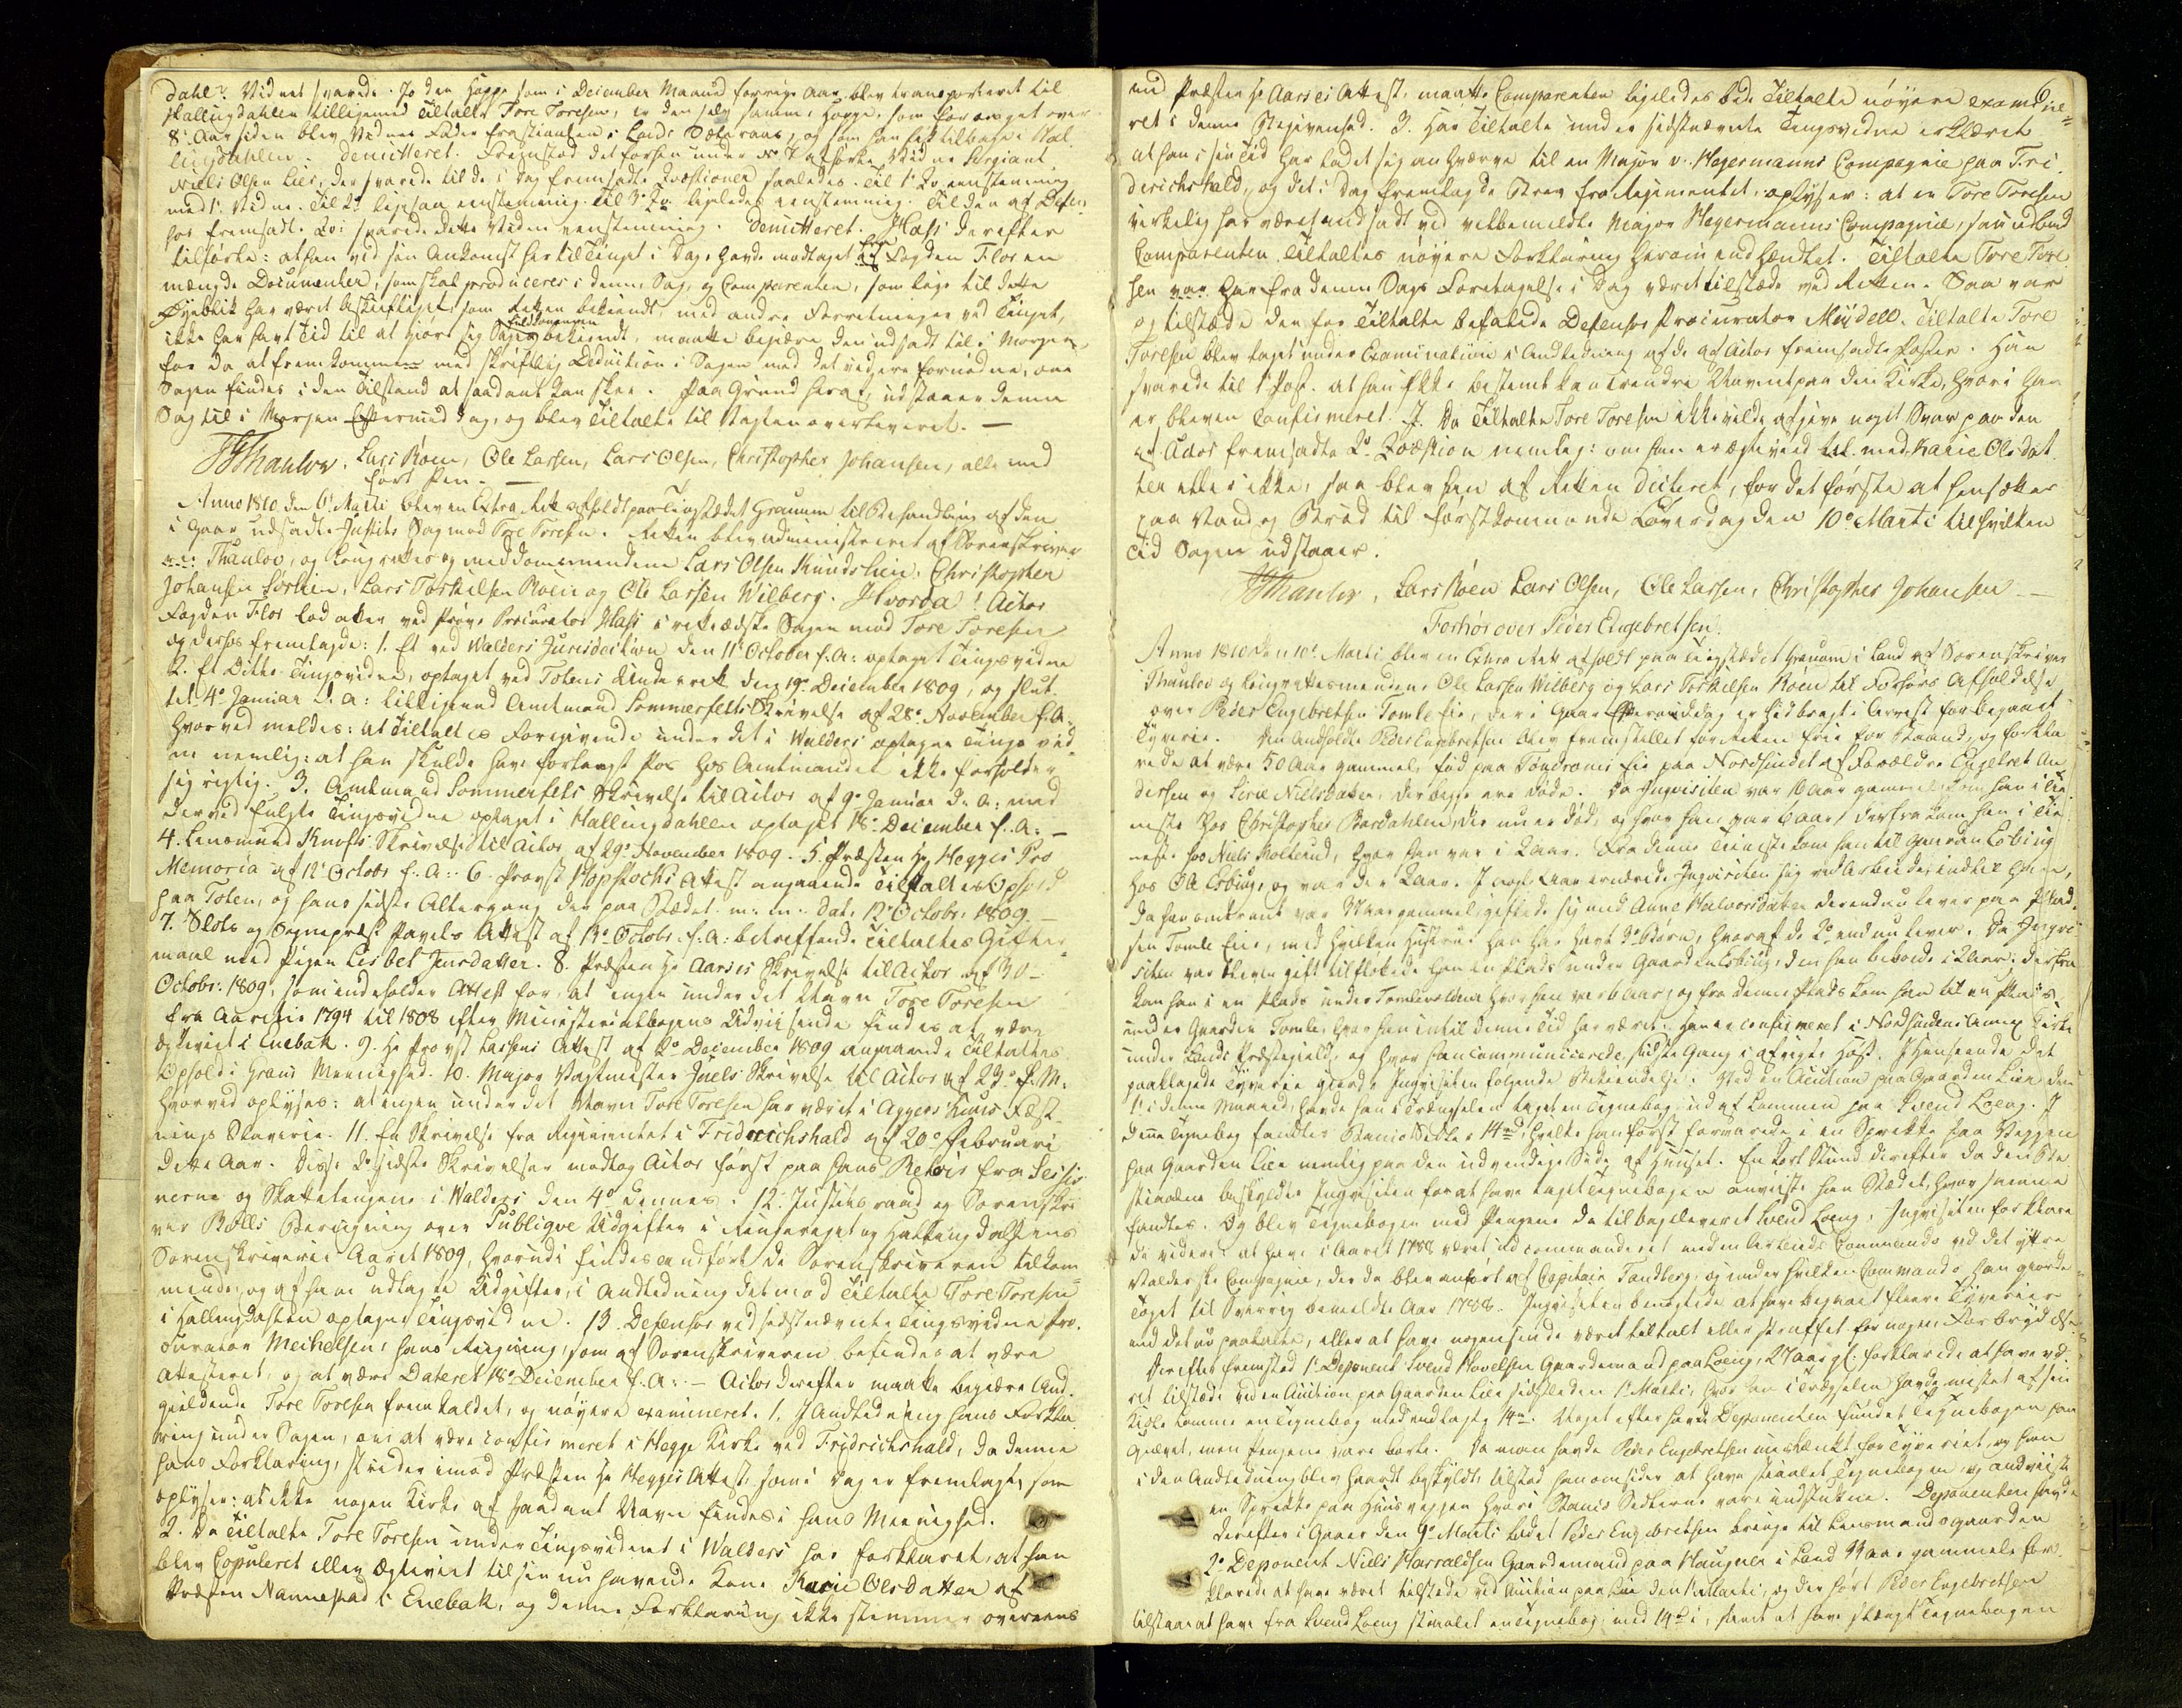 dahl? Vidnet svarede. Jo den Hoppe som i December Maaned forrige Aar blev transporteret til
Hallingdahlen tilligemed Tiltalte Tore Toresen, er den selv samme Hoppe, som for noget over
8te Aar siden blev Vidnets Fader frastiaalen i Lands Sæteraas, og som han fik tilbage i Hal-
lingdahlen. Demitteret. Fremstod det forhen under No 7 afhørte Vidne Sergiant
Niels Olsen Lier, der svarede til de i Dag fremsatte Qvæstioner saaledes. Til 1te Qv: eenstemmig
med 1te Vidne. Til 2d ligesaa eenstemmig. Til 3de Qv: ligeledes eenstemmig. Til den af Defen-
sor fremsadte Qv: svarede dette Vidne eenstemmig. Demitteret. Hassi derefter
tilførte: at han ved sin Ankomst her til Tinget i Dag, havde modtaget fra Fogden Flor en
mængde Documenter, som skal produceres i denne Sag, og Comparenten, som lige til dette
Øyeblik har været beskieftiget, som Retten bekiendt, med andre Forretninger ved Tinget,
ikke har havt Tid til at giøre sig Sagen fuldkommen bekiendt, maatte begiære den udsadt til i Morgen,
for da at fremkomme med skriftlig Deduction i Sagen med det videre fornødne, om
Sagen findes i den Tilstand at saadant kan skee. Paa Grund heraf, udstaaer denne
Sag til i Morgen Eftermiddag, og blev Tiltalte til Vagten overleveret. —
JThaulow. Lars Røen, Ole Larsen, Lars Olsen, Christopher Johansen, alle med
ført Pen. —
Anno 1810 den 6te Marti blev en Extra Ret afholdt paa Tingstædet Granum til Behandling af den
i Gaar udsadte Justits Sag mod Tore Toresen. Retten blev administreret af Sorenskriver
Thaulov, og Laugrettes og meddomsmændene Lars Olsen Kundshuie, Christopher
Johansen Lørken, Lars Torkelsen Røen og Ole Larsen Wilberg. Hvorda! Actor
Fogden Flor lod atter ved Prøve Procurator Hassi irettedske Sagen mod Tore Toresen
og derhos fremlagde: 1. Et ved Walders Jurisdiction den 11te October f. A: optaget Tingsvidne
2. Et Ditto Tingsvidne, optaget ved Totens Underret den 19de December 1809, og slut-
tet 4de Januar d. A: tilligemed Amtmand Sommerfelts Skrivelse af 28de November f. A:
hvorved meldes: at Tiltaltes Foregivende under det i Walders optagne Tings vid-
ne nemlig: at han skulde have forlangt Pas hos Amtmanden ikke forholder
sig rigtig. 3. Amtmand Sommerfelts Skrivelse til Actor af 9de Januar d. A: med
derved fulgte Tingsvidne optaget i Hallingdahlen optaget 18de December f. A: —
4. Lensmand Knoffs Skrivelse til Actor af 29de November 1809. 5. Præsten Hr Hegges Pro
Memoria af 12te Octobr f. A: 6. Provst Hopstochs Attest angaaende Tiltaltes Ophold
paa Toten, og hans sidste Altergang der paa Stædet m: m: dat: 12te Octobr: 1809. —
7. Slots og Sognepræst Pavels Attest af 13de Octobr. f. A: betreffende Tiltaltes Gifter-
maal med Pigen Lisbet Jursdatter. 8. Præsten Hr Aarses Skrivelse til Actor af 30te
Octobr: 1809, som indeholder Attest for, at ingen under det Navn Tore Toresen
fra Aarene 1794 til 1808 efter Ministerialbogens Udviisende findes at være
ægteviet i Enebak. 9. Hr Provst Lassens Attest af 2de December 1809 angaaende Tiltaltes
Ophold i Grans Meenighed. 10. Major Vagtmester Juels Skrivelse til Actor af 23de f. M:
hvorved oplyses: at ingen under det Navn Tore Toresen har været i Aggers huus Fæst-
nings Slaverie. 11. En Skrivelse fra Regimentet i Fridrichshald af 20de Februari
dette Aar. Disse 2de sidste Skrivelser modtog Actor først paa hans Retour fra Sessio-
nerne og Skattetingene i Walders den 4de dennes. 12. Justitsraad og Sorenskri-
ver Bølls Beregning over Publiqve Udgifter i Ringeriget og Hallingdahlens
Sorenskriverie Aaret 1809, hvorudi findes andført de Sorenskriveren tilkom-
mende, og af ham udlagte Udgifter, i Andledning det mod Tiltalte Tore Toresen
i Hallingdahlen optagne Tingsvidne. 13. Defensor ved sidstnævnte Tingsvidne Pro-
curator Meihelsen, hans Regning, som af Sorenskriveren befindes at være
attesteret, og at være dateret 18de December f. A: — Actor derefter maatte begiære And-
gieldende Tore Toresen fremkaldet, og nøyere examineret. 1. I Andledning hans Forkla-
ring under Sagen, om at være confirmeret i Hegge Kirke ved Fridrichshald, da denne
hans Forklaring, strider imod Præsten Hr Hegges Attest, som i Dag er fremlagt, som
oplyser: at ikke nogen Kirke af saadant Navn findes i hans Meenighed.
2. Da Tiltalte Tore Toresen under Tingsvidnet i Walders har forklaret, at han
blev Copuleret eller ægteviet til sin nu havende Kone Karie Olsdatter af
Præsten Nannestad i Enebak, og denne Forklaring ikke stemmer overeens
med Præsten Hr Aarses Attest, maatte Comparenten ligeledes bede Tiltalte nøyere examine-
ret i denne Begivenhed. 3. Har Tiltalte under sidstnævnte Tingsvidne erklæret
at han i sin Tid har ladet sig anhværve til en Major v. Hegermanns Compagnie paa Fri-
derichshald, og det i Dag fremlagde Brev fra Regimentet, oplyser: at en Tore Toresen
virkelig har været andsadt ved velbemeldte Major Hegermanns Compagnie, saa udbad
Comparenten Tiltaltes nøyere Forklaring herom indhændtet. Tiltalte Tore Tore-
sen var har fra denne Sags Foretagelse i Dag været tilstæde ved Retten. Saa var
og tilstæde den for Tiltalte befalede Defensor Procurator Mydell. Tiltalte Tore
Toresen blev taget under Examination i Andledning af de af Actor fremsadte Poster. Han
svarede til 1te Post. at han ikke bestemt kan erindre Navnet paa den Kirke, hvori han
er bleven Confirmeret. Da Tiltalte Tore Toresen ikke vilde afgive noget Svar paa den
af Actor fremsadte 2de Qvæstion nemlig: om han er ægteviet med Karie Olsdat-
ter eller ikke, saa blev han af Retten dicteret, for det første at hensættes
paa Vand og Brød til førstkommende Løverdag den 10de Marti til hvilken
Tid Sagen udstaaer.
JThaulow, Lars Røen Lars Olsen, Ole Larsen, Christopher Johansen —
Forhør over Peder Engebretsen.
Anno 1810 den 10de Marti blev en Extra Ret afholdt paa Tingstædet Granum i Land af Sorenskriver
Thaulov og Laugrettesmændene Ole Larsen Wilberg og Lars Torkilsen Røen til Forhørs Afholdelse
over Peder Engebretsen Tomle Eie, der i Gaar Eftermiddag er hidbragt i Arrest for begaaet
Tyverie. Den Andholdte Peder Engebretsen blev fremstillet for Retten frie for Baand, og forkla-
rede at være 50 Aar gammel, fød paa Tøndroms Eie paa Nordsindet af Forældre Engebret An-
dersen og Sirie Nielsdatter, der begge ere døde. Da Inqvisiten var 10 Aar gammel kom han i Tie-
neste hos Christopher Bordahlen, der nu er død, og hvor han var 6 aar, derfra kom han i Tie-
neste hos Niels Molterud, hvor han var i 2 Aar. Fra denne Tieneste kom han til Gaarden Esbiug
hos Ole Esbiug, og var der 2 Aar. I nogle Aar ernærede Inqvisiten sig ved Arbeide, indtil han,
da han omtrent var Aar gammel, giftede sig med Anne Halvorsdatter der endnu lever paa Plad-
sen Tomle Eie, med hvilken Hustrue han har havt 3de Børn, hvoraf de 2de endnu lever. Da Inqvi-
siten var bleven gift tilflyttede han en Plads under Gaarden Esbiug, den han beboede i 2 Aar. Derfra
kom han i en Plads under Tomlevolden hvor han var 6 Aar, og fra denne Plads kom han til en Plads
under Gaarden Tomle, hvor han indtil denne Tid har været. Han er confirmeret i Nordsindens Annex Kirke
under Lands Præstegield, og hvor han communicerede sidste Gang i afvigte Høst. I Henseende det
paaklagede Tyverie giorde Inqvisiten følgende Bekiendelse: Ved en Auction paa Gaarden Lien den
1te i denne Maaned, havde han i Trængselen taget en Tegnebog ud af Lommen paa Svend Loeng. I
denne Tegnebog fandtes Banco Sedler 14 rd, hvilke han først forvarede i en Sprekke paa Veggen
paa Gaarden Lien nemlig paa den udvendige Side af Huuset. En kort Stund derefter da den Be-
stiaalne beskyldte Inqvisiten for at have taget Tegnebogen anviiste han Stædet, hvor samme
fandtes. Og blev Tegnebogen med Pengene da tilbageleveret Svend Loeng. Inqvisiten forklare-
de videre at have i Aaret 1788 været udcommanderet med en Arbeids Commando ved det yttre
Walderske Compagnie, der da blev anført af Capitain Tandberg, og under hvilken Commando han giorde
Toget til Sverrig bemeldte Aar 1788. Inqvisiten benegtede at have begaaet flere Tyverier
end det nu paatalte, eller at have nogensinde været tiltalt eller straffet for nogen Forbrydelse.
Derefter fremstod 1te Deponent Svend Hovelsen Gaardemand paa Loeng, 27 Aar gl: forklarede at have væ-
ret tilstæde ved en Auction paa Gaarden Lien sidstleden 1te Marti, hvor han i Trængselen havde mistet af sin
Kiole Lomme en Tegnebog med indlagte 14 rd. Noget efter havde Deponenten fundet Tegnebogen paa
Gulvet, men Pengene vare borte. Da man havde Peder Engebretsen mistænkt for Tyveriet, og han
i den Andledning blev haardt beskyldt, tilstod han omsider at have stiaalet Tegnebogen og andviiste
en Sprekke paa Huusveggen hvori Banco Sedlerne vare indstukne. Deponenten havde
derefter i Gaar den 9de Marti ladet Peder Engebretsen bringe til Lensmandsgaarden
2de Deponent Niels Harraldsen Gaardemand paa Haugner i Land Aar gammel for-
klarede at have været tilstede ved Auction paa Lien den 1te Marti, og der hørt Peder Engebretsen
tilstaae at have fra Svend Loeng stiaalet en Tegnebog med 14 rd i, samt at have slængt Tegnebogen